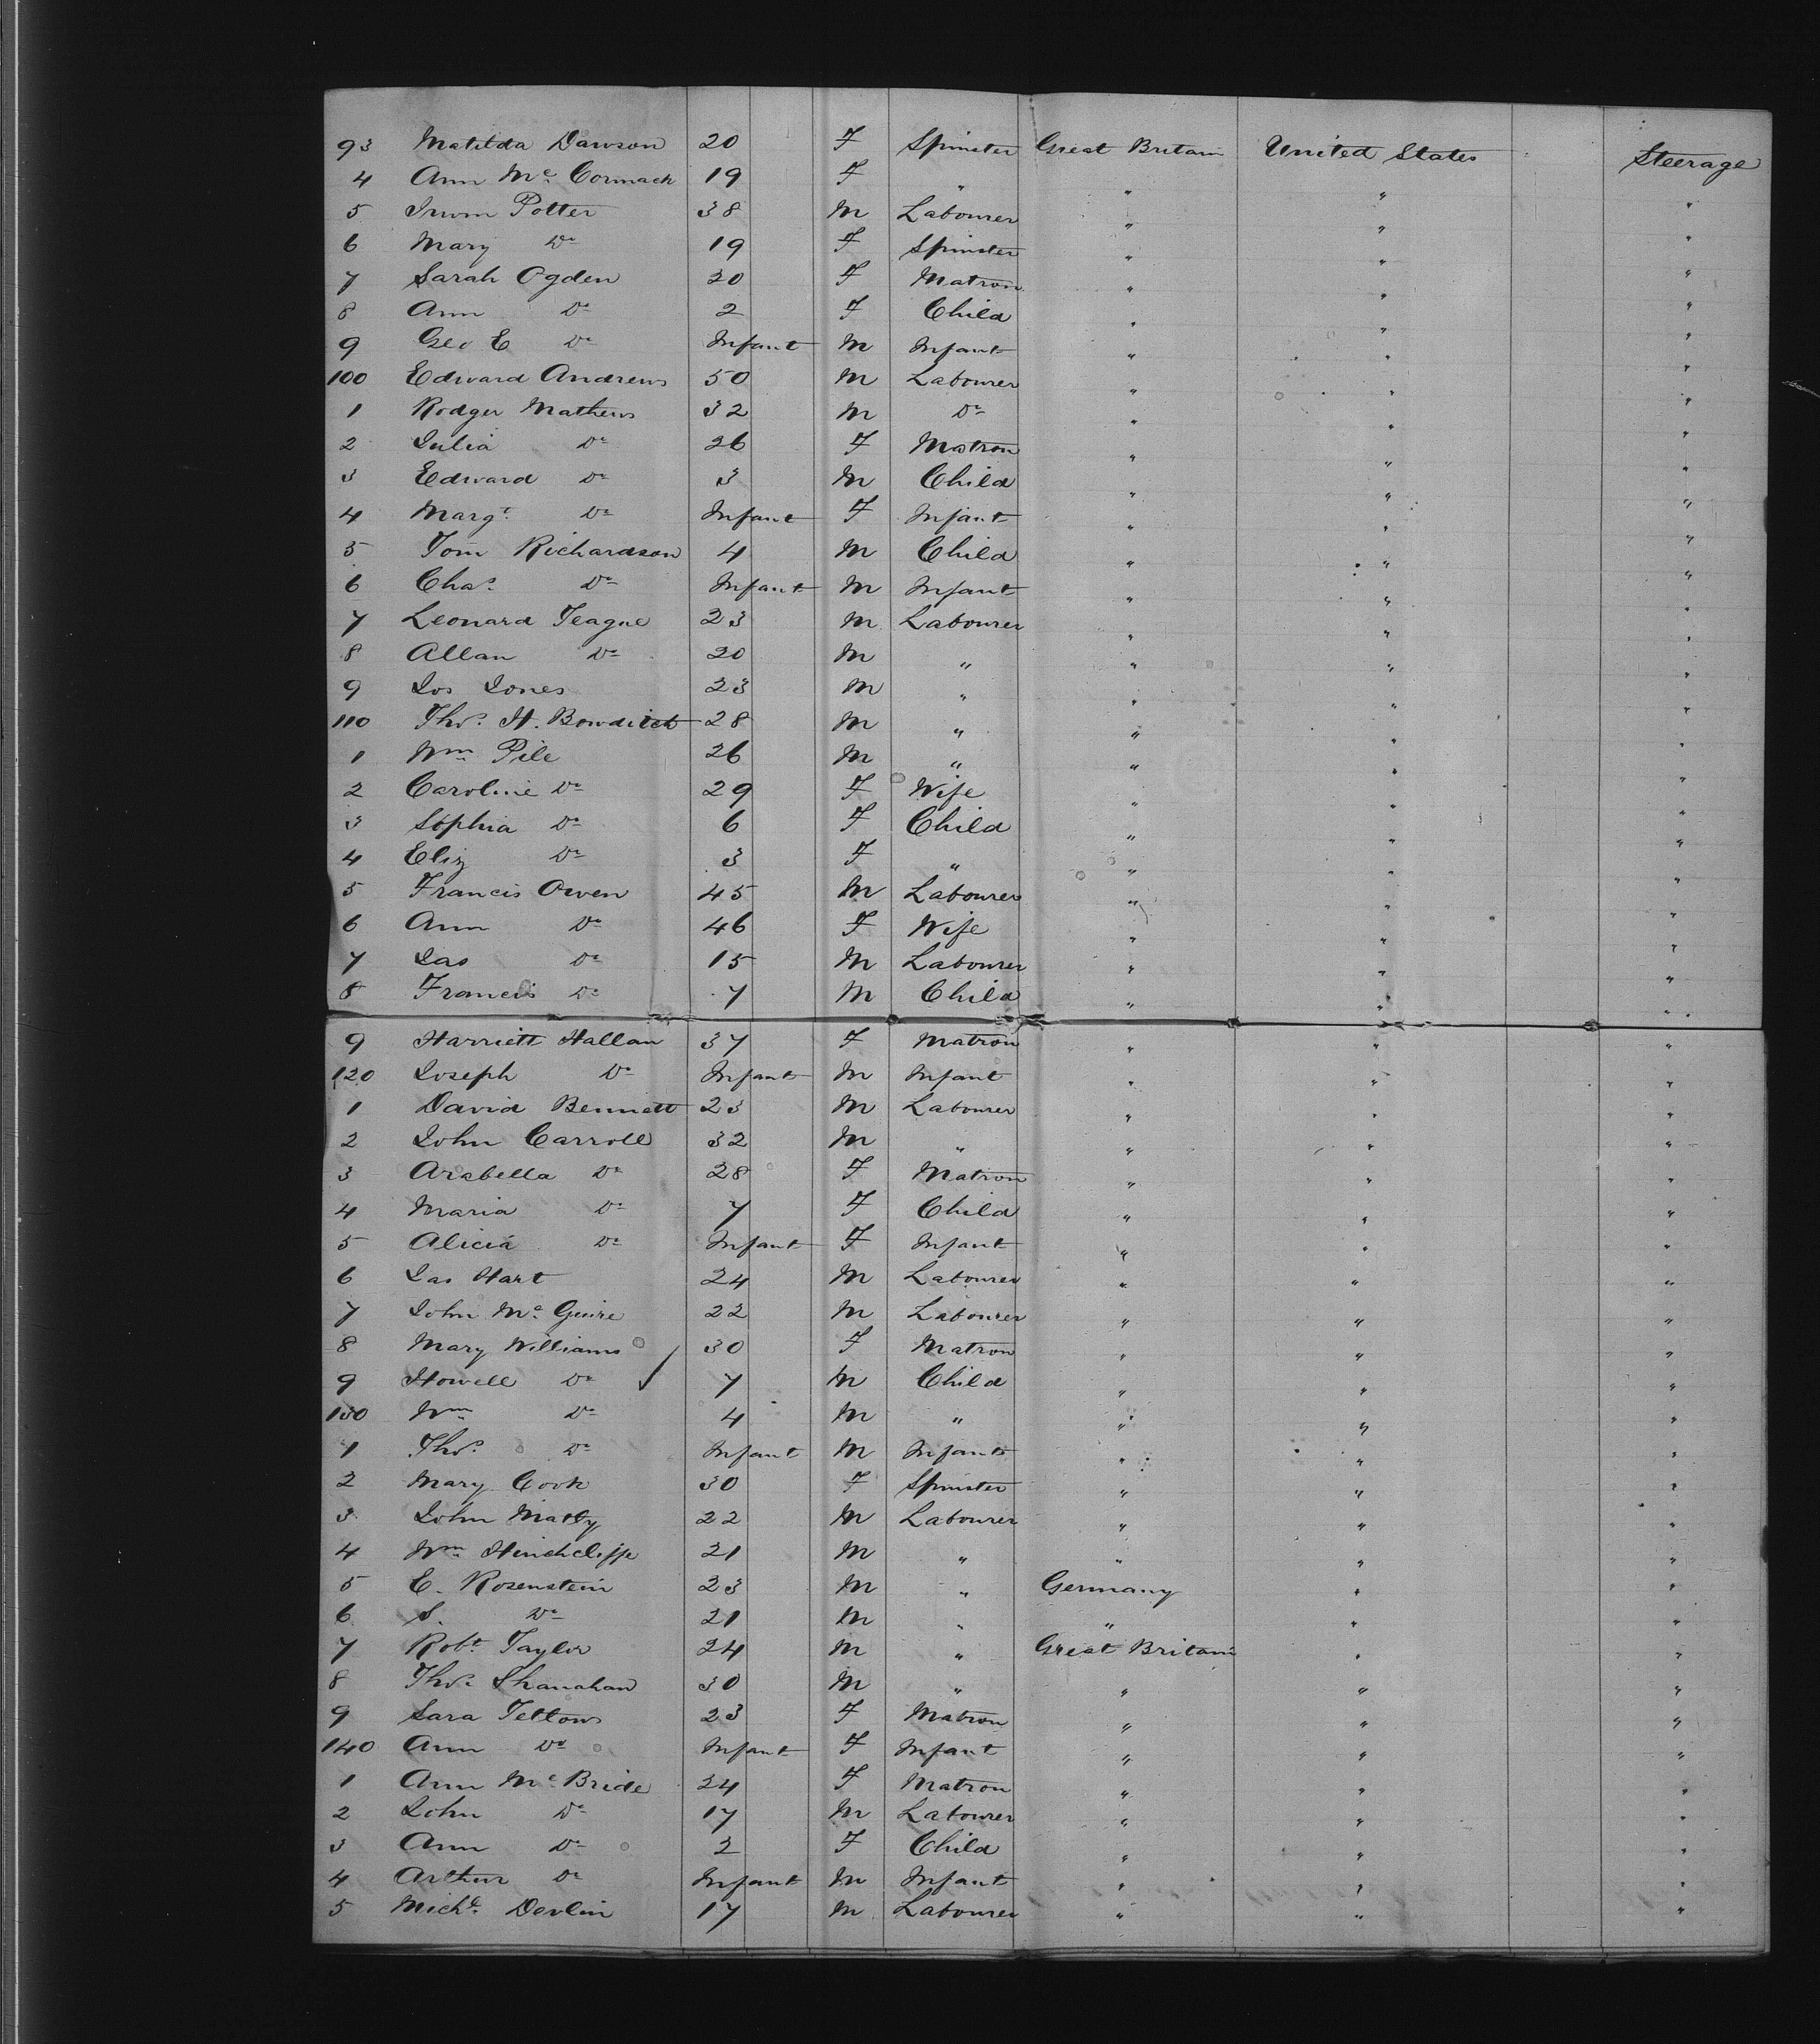 93 Matilda Dawson 20 F Spinster Great Britain United States Steerage
4 Ann Mc Cormack 19 F " " " "
5 Irwin Potter 38 M Labourer " " "
6 Mary Do 19 F Spinster " " "
7 Sarah Ogden 30 F Matron " " "
8 Ann Do 2 F Child " " "
9 Geo E Do Infant M Infant " " "
100 Edward Andrews 50 M Labourer " " "
1 Rodger Mathews 32 M Do " " "
2 Julia Do 26 F Matron " " "
3 Edward Do 3 M Child " " "
4 Margt Do Infant F Infant " " "
5 Tom Richardson 4 M Child " " "
6 Chas Do Infant M Infant " " "
7 Leonard Teague 23 M Labourer " " "
8 Allan Do 20 M " " " "
9 Jos Jones 23 M " " " "
110 Thos. H. Bowditch 28 M " " " "
1 Wm Pile 26 M " " " "
2 Caroline Do 29 F Wife " " "
3 Sophia Do 6 F Child " " "
4 Eliz Do 3 F " " " "
5 Francis Owen 45 M Labourer " " "
6 Ann Do 46 F Wife " " "
7 Jas Do 15 M Labourer " " "
8 Francis Do 7 M Child " " "
9 Harriett Hallan 37 F Matron " " "
120 Joseph Do Infant M Infant " " "
1 David Bennett 23 M Labourer " " "
2 John Carroll 32 M " " " "
3 Arabella Do 28 F Matron " " "
4 Maria Do 7 F Child " " "
5 Alicia Do Infant F Infant " " "
6 Jas Hart 24 M Labourer " " "
7 John Mc Guire 22 M Labourer " " "
8 Mary Williams 30 F Matron " " "
9 Howell Do 7 M Child " " "
130 Wm Do 4 M " " " "
1 Thos Do Infant M Infant " " "
2 Mary Cook 30 F Spinster " " "
3 John 22 M Labourer " " "
4 Wm Hinchcliffe 21 M " " " "
5 E. Rosenstein 23 M " Germany " "
6 S. Do 21 M " " " "
7 Robt Taylor 24 M " Great Britain " "
8 Thos Shanahan 30 M " " " "
9 Sara 23 F Matron " " "
140 Ann Do Infant F Infant " " "
1 Ann Mc Bride 24 F Matron " " "
2 John Do 17 M Labourer " " "
3 Ann Do 2 F Child " " "
4 Arthur Do Infant M Infant " " "
5 Michl Devlin 17 M Labourer " " "